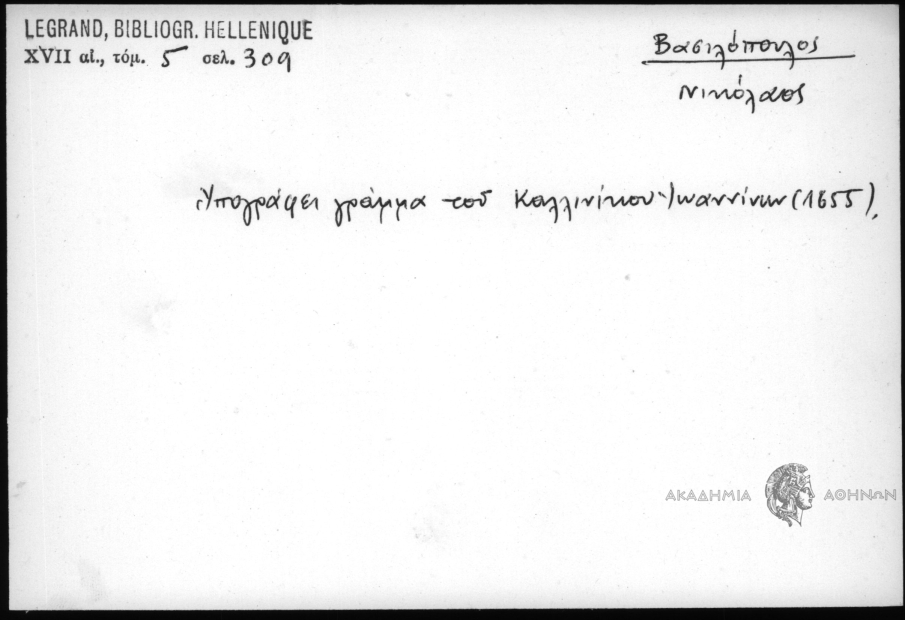 LEGRAND, BIBLIOGR. HELLENIQUE
XVII αἰ., τόμ. 5 σελ. 309
Βασιλόπουλος
Νικόλαος
Ὑπογράφει γράμμα τοῦ Καλλινίκου Ἰωαννίνων (1655).
ΑΚΑΔΗΜΙΑ ΑΘΗΝΩΝ